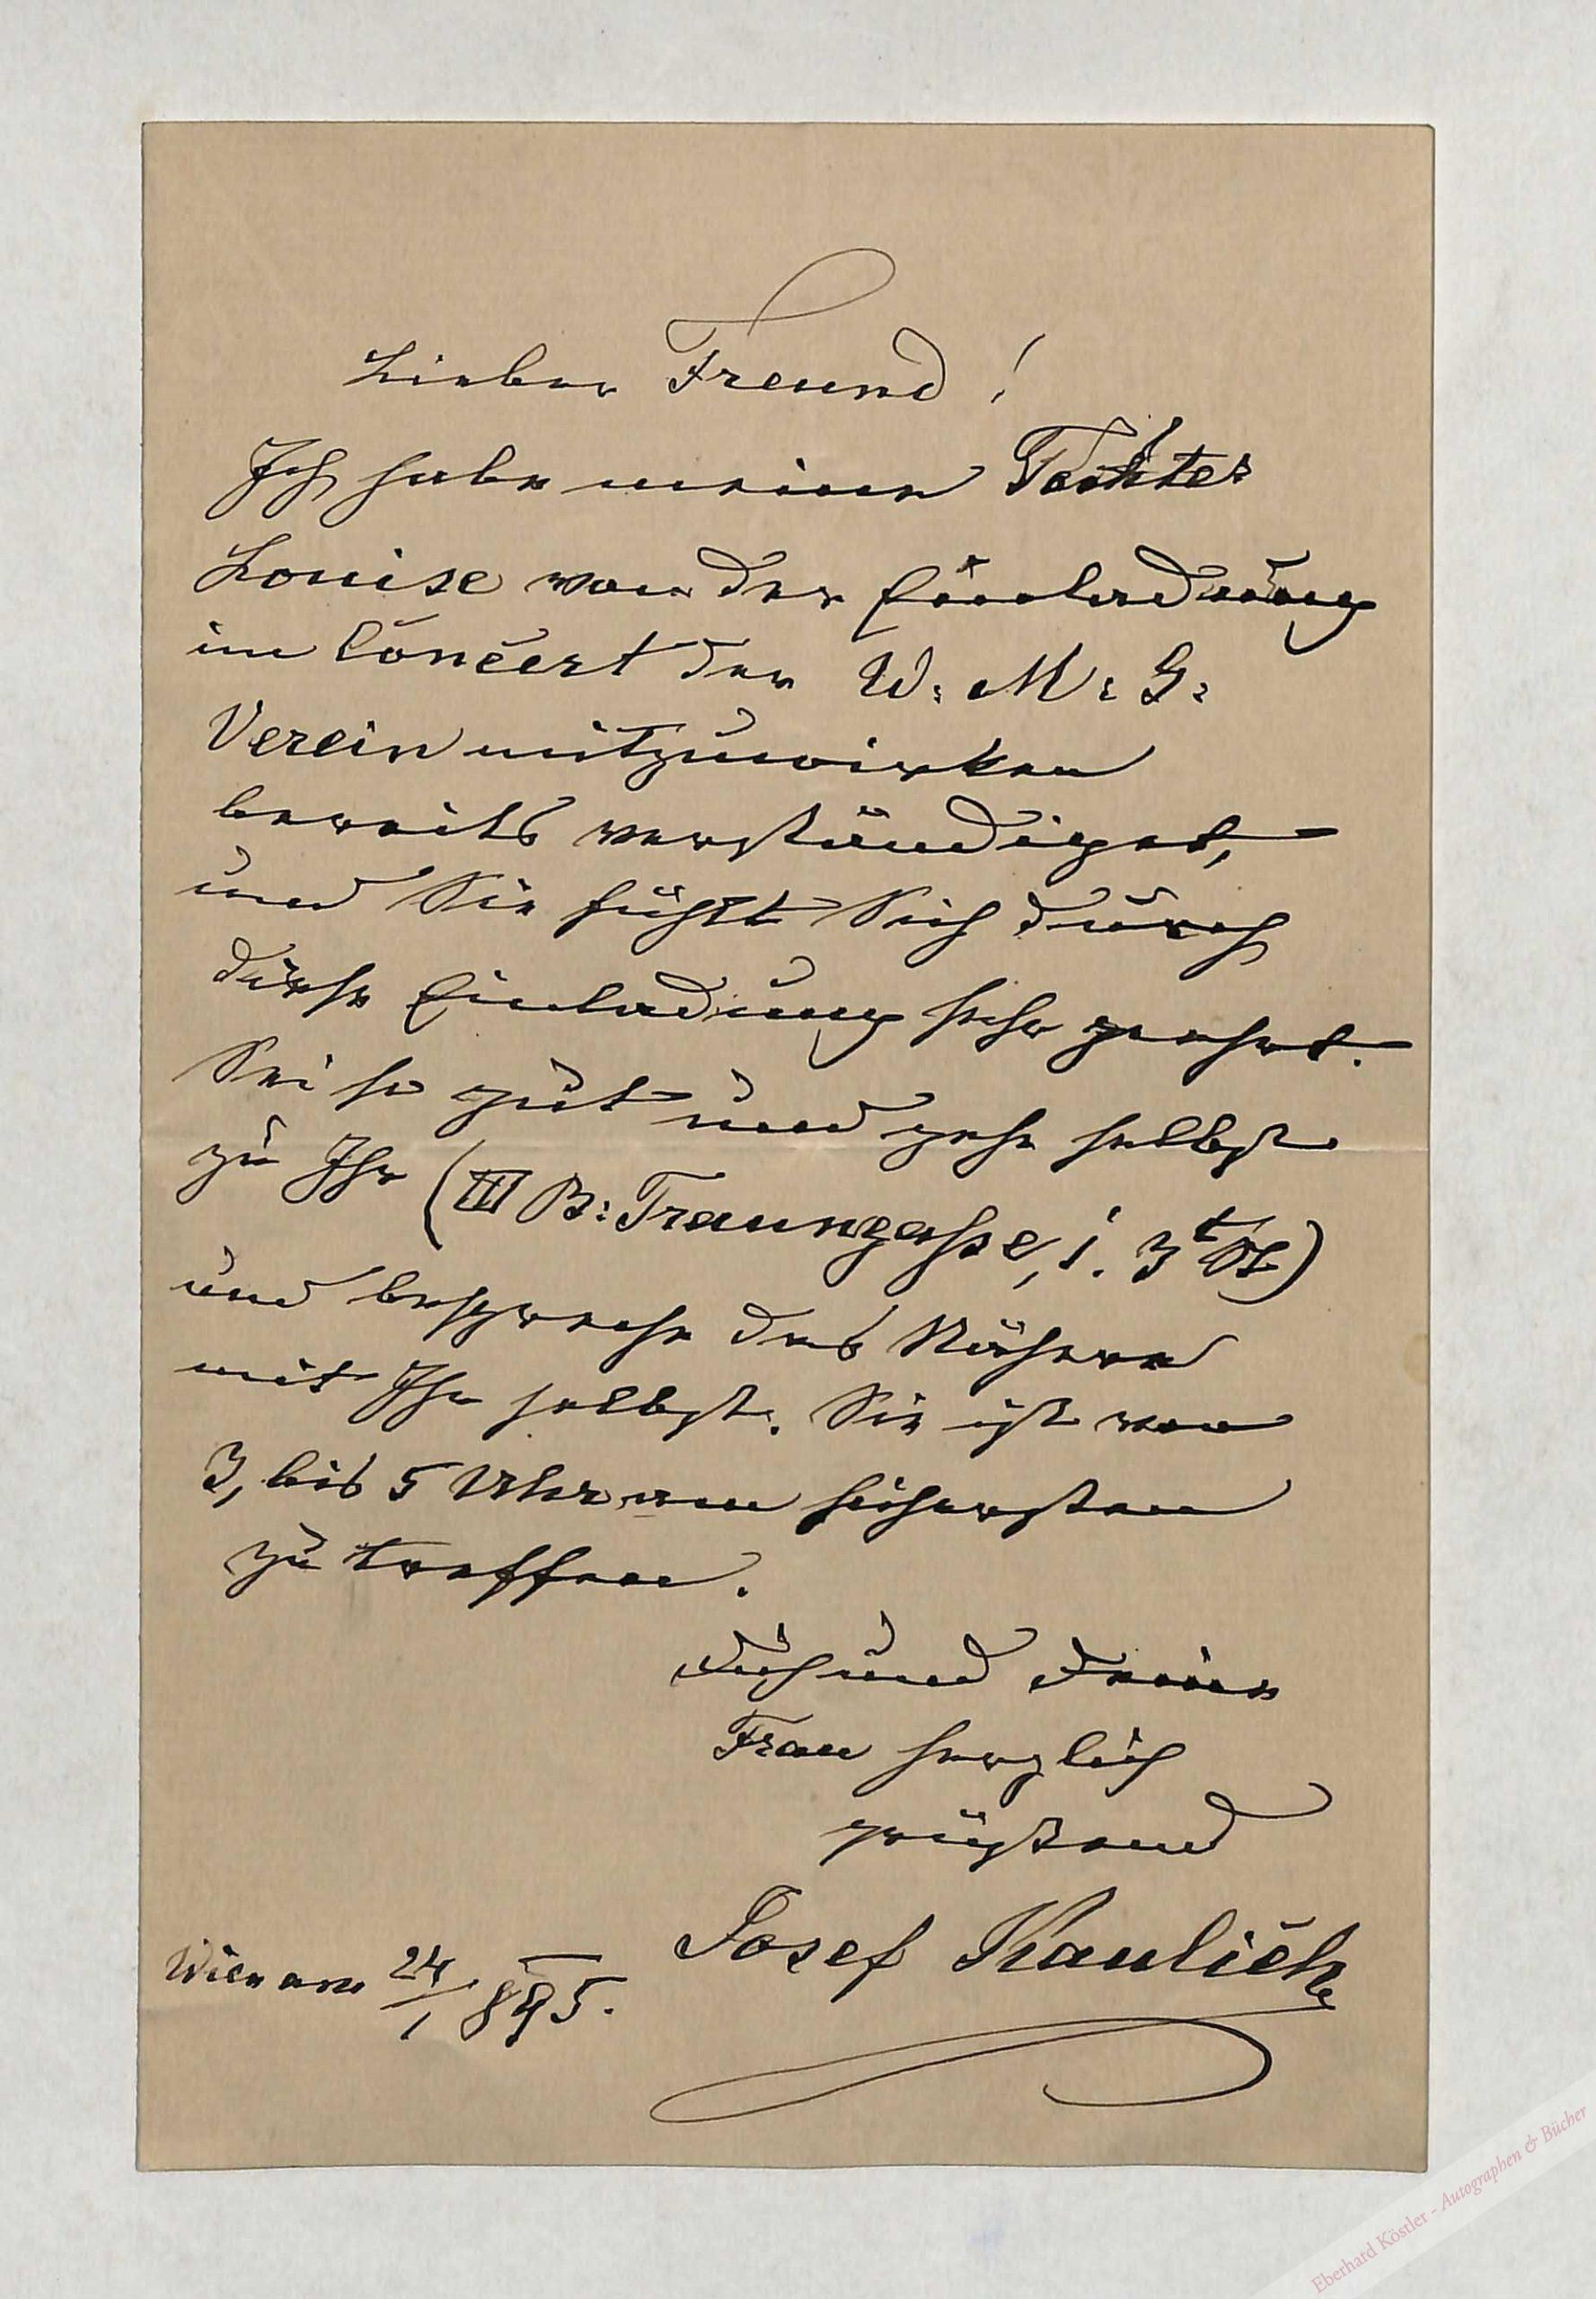 Lieber Freund!
Ich habe meine Tochter
Louise von der Einladung
im Concert der W: M: G:
Verein mitzuwirken
bereits verständiget,
und Sie fühlt Sich durch
diese Einladung sehr geehrt.
Sei so gut und gehe selbst
zu Ihr (III B: Traungasse, 1. 3t St)
und bespreche das Nähere
mit Ihr selbst. Sie ist von
3, bis 5 Uhr am sichersten
zu treffen.
Dich und Deine
Frau herzlich
grüßend
Josef Kaulich
Wien am 24/1 895.
Eberhard Köstler - Autographen & Bücher